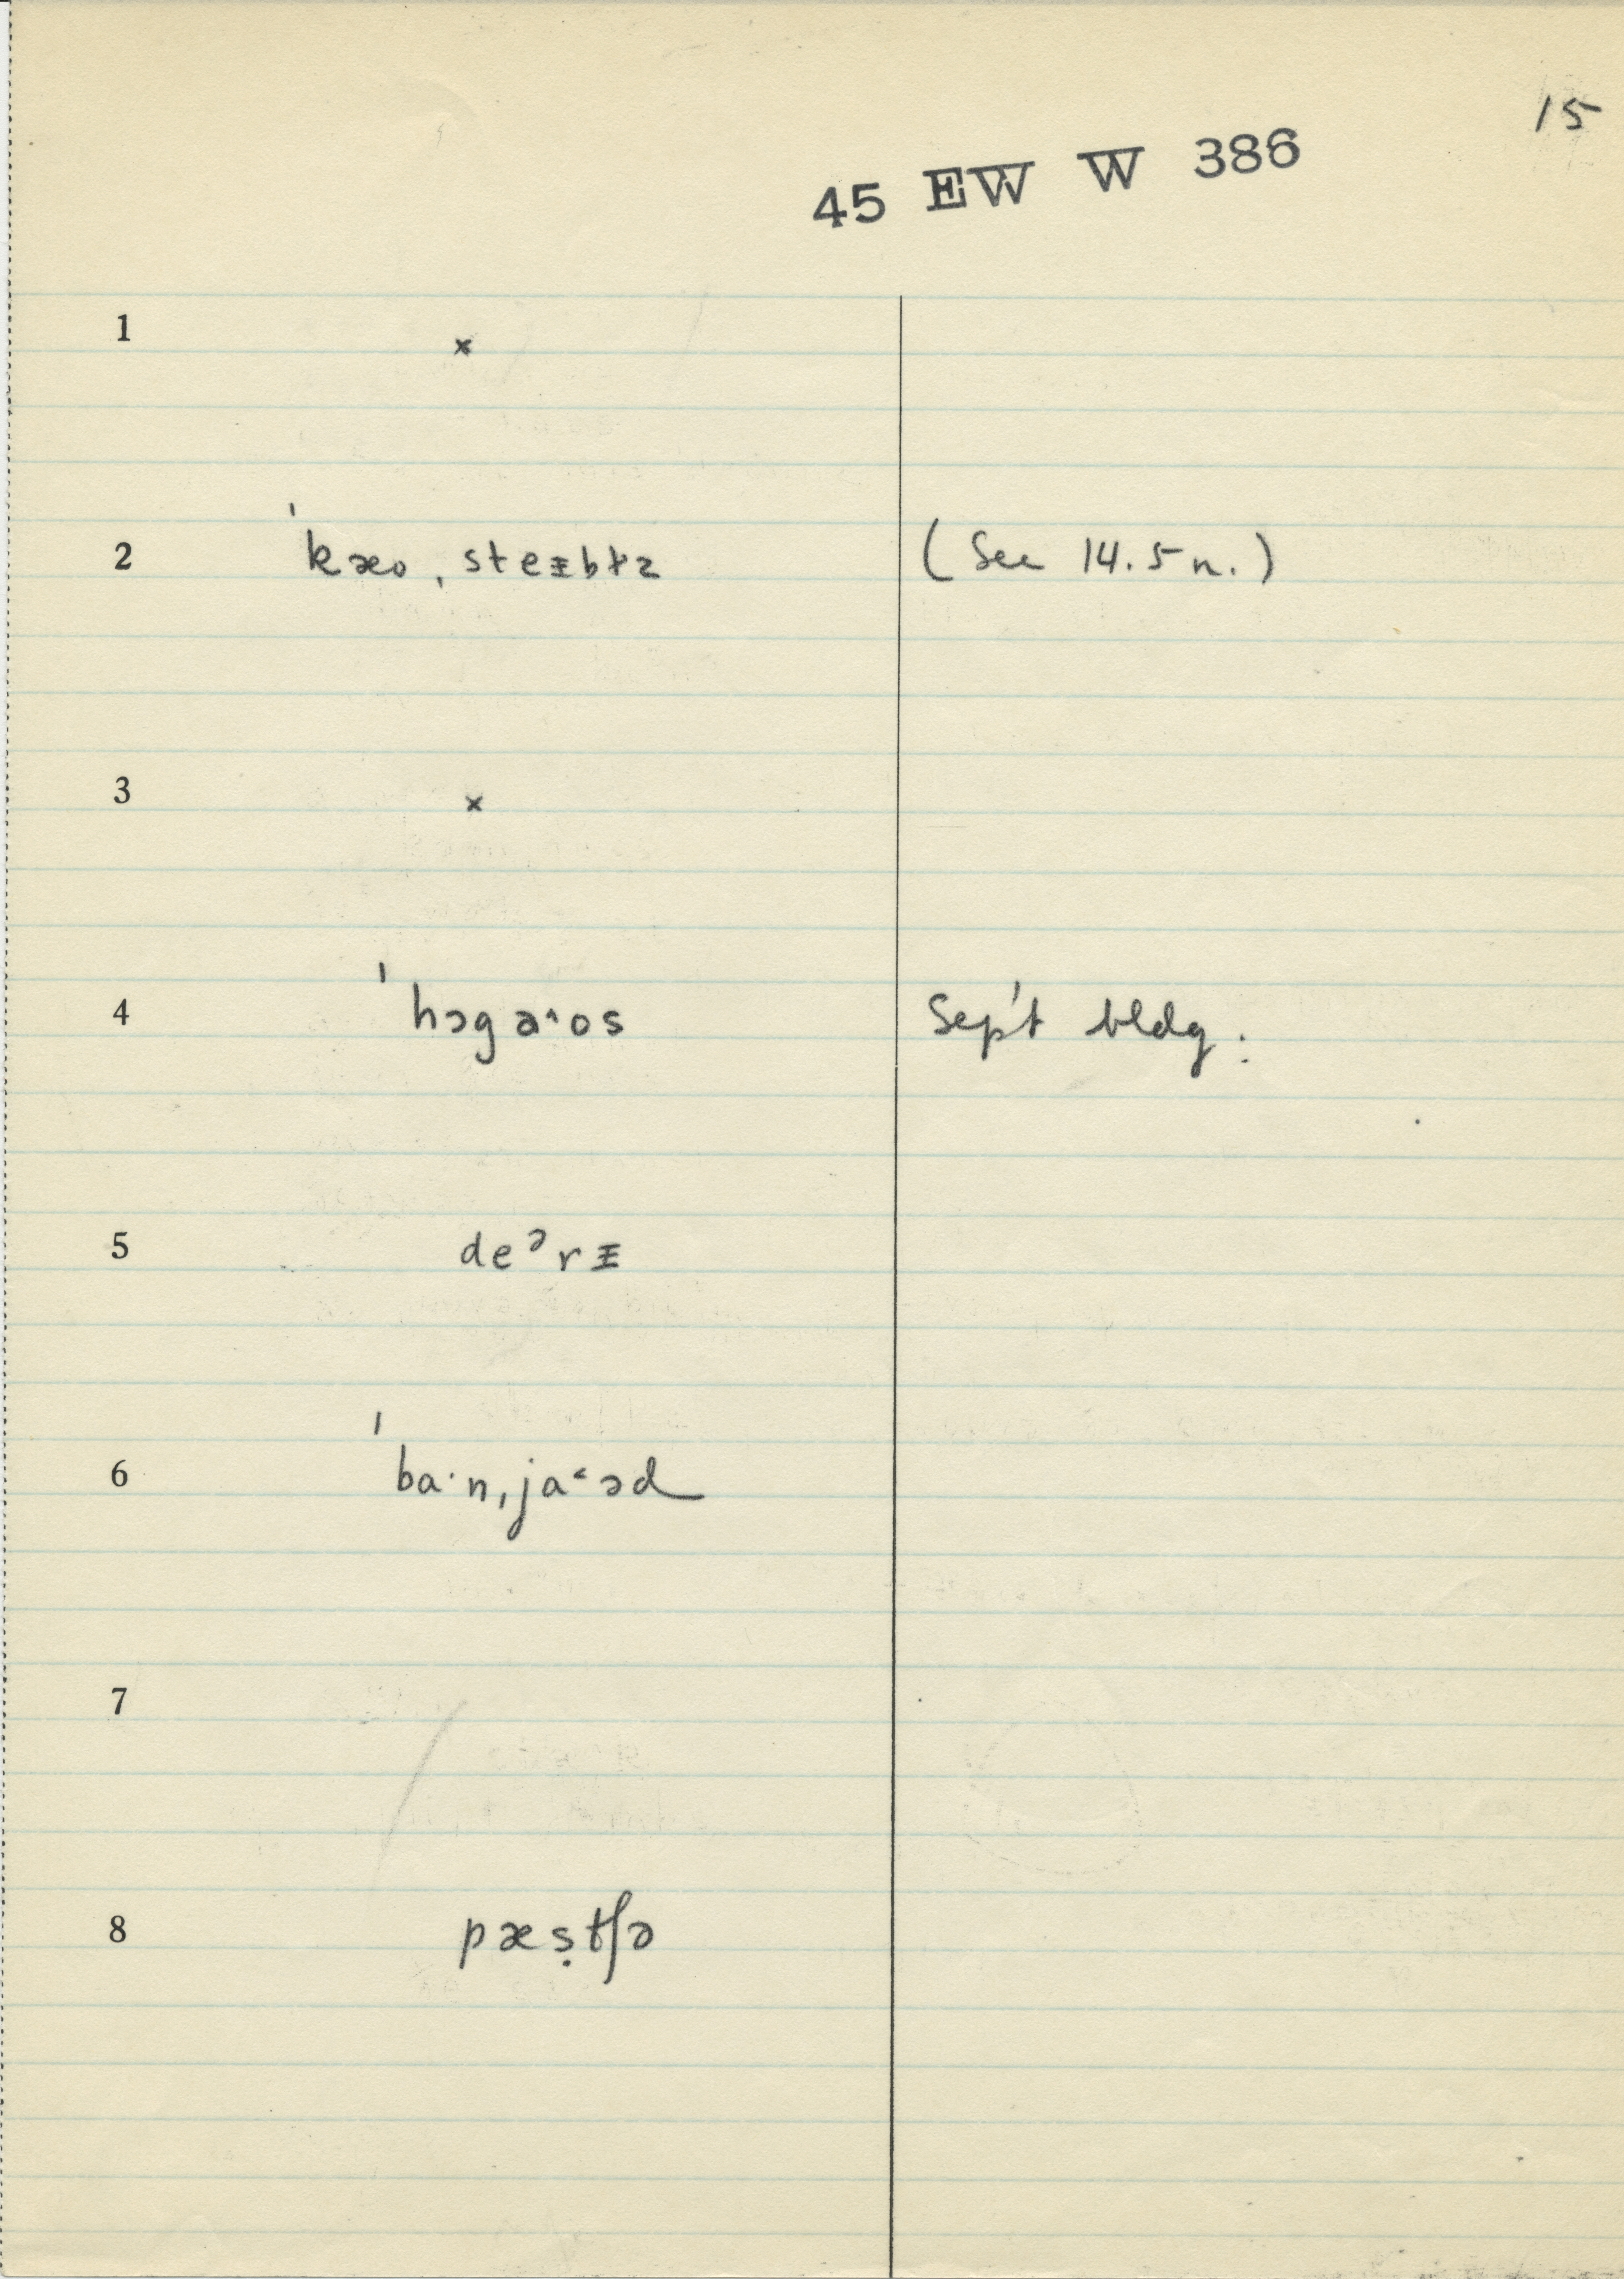 15
45 EW W 386
1 ×
2 ˈkæo ˌsteɪbɫz (See 14.5 n.)
3 ×
4 ˈhɔgaˑos Sep't bldg.
5 deᵊrɪ
6 ˈbaˑnˌjaˑəd
7
8 pæṣtʃə